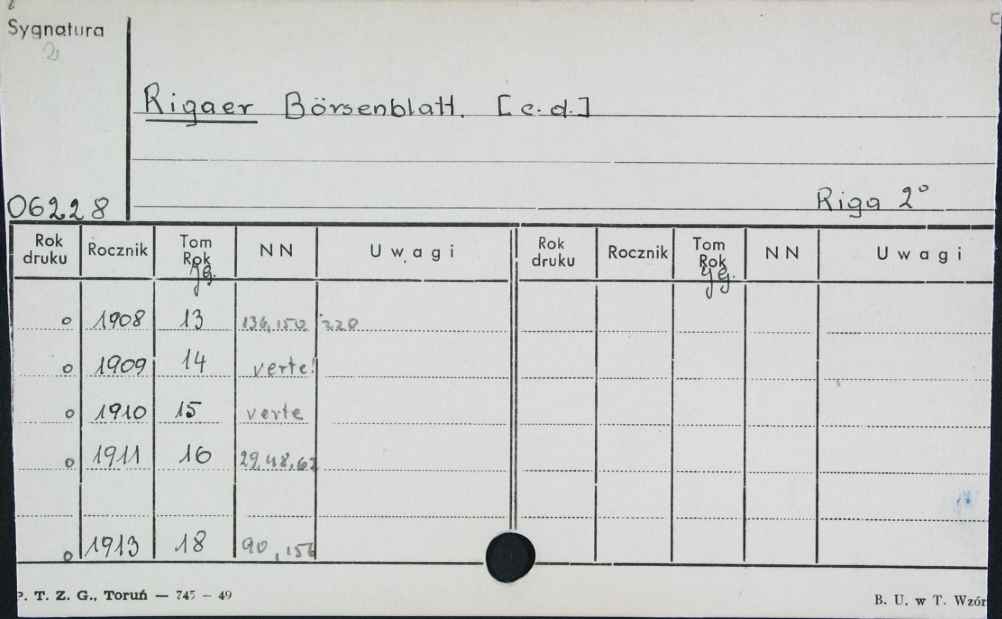 Sygnatura
Rigaer Börsenblatt. [c.d.]
06228
Riga 2°
Rok druku Rocznik Tom Rok Jg. NN Uwagi Rok druku Rocznik Tom Rok Jg. NN Uwagi
o 1908 13 136,150 220
o 1909 14 verte!
o 1910 15 verte
o 1911 16 29,48,62
o 1913 18 90,156
P. T. Z. G., Toruń — 745 — 49
B. U. w T. Wzór